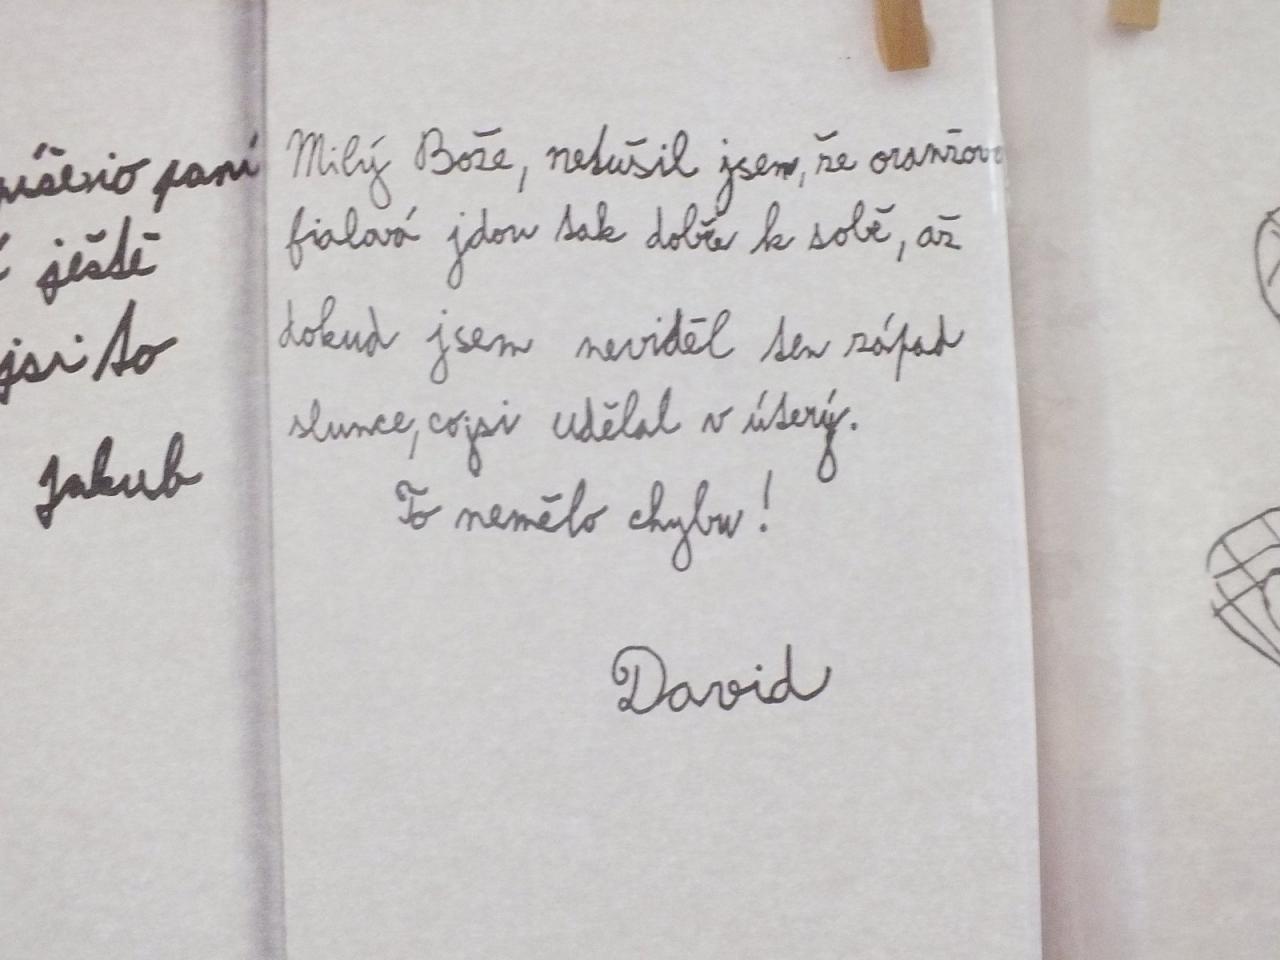 paní
ještě
jsi to
Jakub
Milý Bože, netušil jsem, že oranžov
fialová jdou tak dobře k sobě, až
dokud jsem neviděl ten západ
slunce, cojsi udělal v úterý.
To nemělo chybu!
David